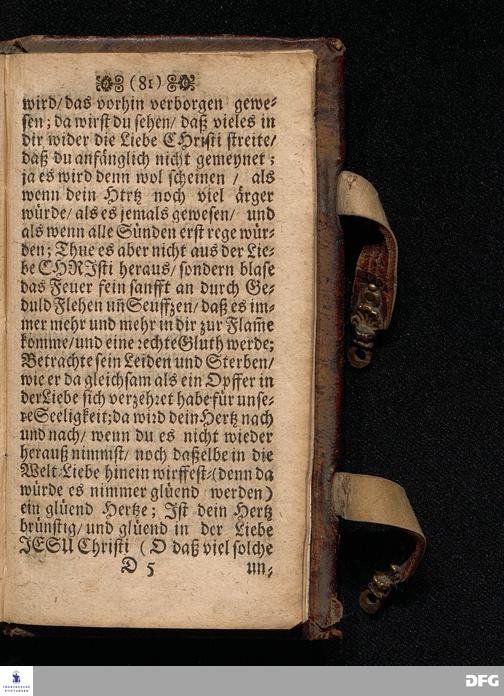 (81)
wird/ das vorhin verborgen gewe-
sen; da wirst du sehen/ daß vieles in
dir wider die Liebe CHristi streite/
daß du anfänglich nicht gemeynet;
ja es wird denn wol scheinen / als
wenn dein Hertz noch viel ärger
würde/ als es jemals gewesen/ und
als wenn alle Sünden erst rege wür-
den; Thue es aber nicht aus der Lie-
be CHRIsti heraus/ sondern blase
das Feuer fein sanfft an durch Ge-
duld Flehen uñ Seuffzen/ daß es im-
mer mehr und mehr in dir zur Flam̃e
komme/ und eine rechte Gluth werde;
Betrachte sein Leiden und Sterben/
wie er da gleichsam als ein Opffer in
der Liebe sich verzehret habe für unse-
re Seeligkeit; da wird dein Hertz nach
und nach/ wenn du es nicht wieder
herauß nimmst/ noch daßelbe in die
Welt-Liebe hinein wirffest/ (denn da
würde es nimmer glüend werden)
ein glüend Hertze; Ist dein Hertz
brünstig/ und glüend in der Liebe
JESU Christi ( O daß viel solche
D 5 un-
FRANCKESCHE
STIFTUNGEN
DFG